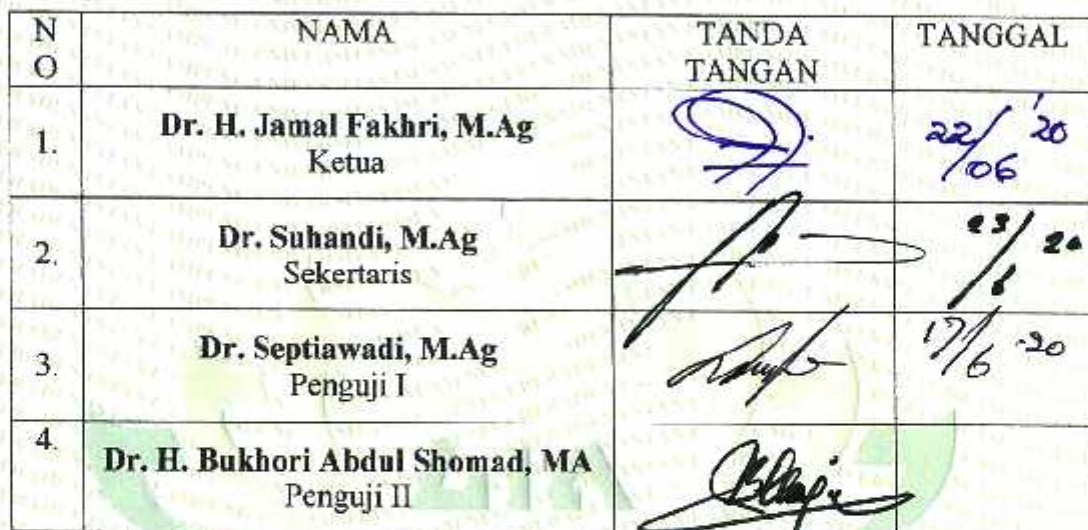 N
O
NAMA
TANDA
TANGAN
TANGGAL
1.
Dr. H. Jamal Fakhri, M.Ag
Ketua
22/06 '20
2.
Dr. Suhandi, M.Ag
Sekertaris
23/6 20
3.
Dr. Septiawadi, M.Ag
Penguji I
17/6 -20
4.
Dr. H. Bukhori Abdul Shomad, MA
Penguji II